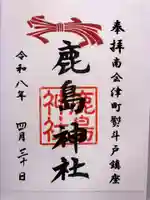 奉拝 南会津町熨斗戸鎮座
鹿島神社
鹿島
神社
令和八年 四月三十日